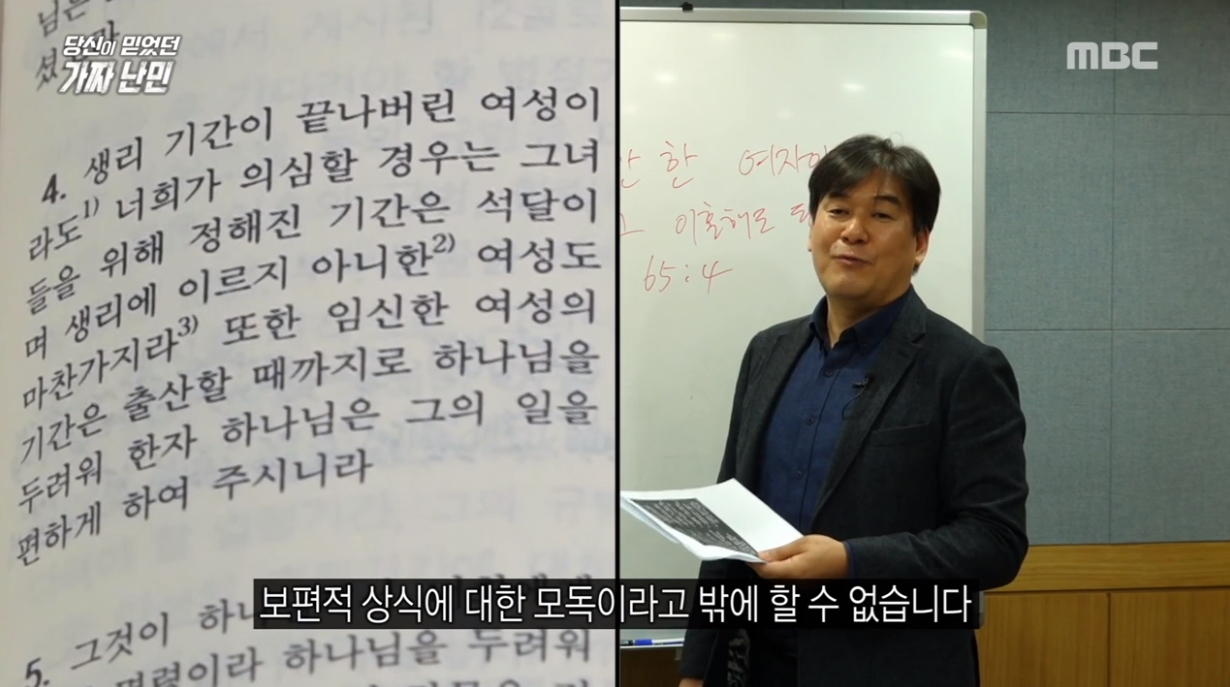 님은
셨
당신이 믿었던
가짜 난민
4. 생리 기간이 끝나버린 여성이
라도1) 너희가 의심할 경우는 그녀
들을 위해 정해진 기간은 석달이
며 생리에 이르지 아니한2) 여성도
마찬가지라3) 또한 임신한 여성의
기간은 출산할 때까지로 하나님을
두려워 한자 하나님은 그의 일을
편하게 하여 주시니라
5. 그것이
명령이라 하나님을 두려워
MBC
한 여자
이혼해도
65:4
보편적 상식에 대한 모독이라고 밖에 할 수 없습니다